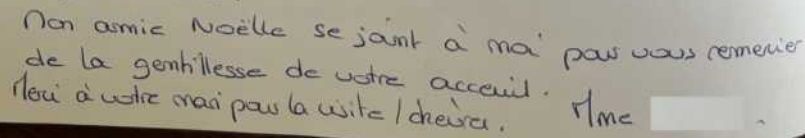 Mon amie Noëlle se joint à moi pour vous remercier
de la gentillesse de votre acceuil.
Merci à votre mari pour la visite / chèvres. Mme